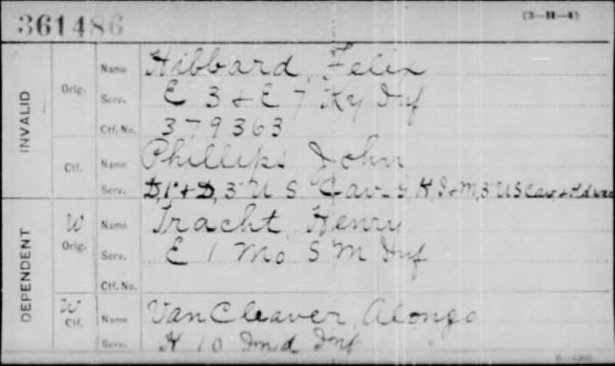 361486 (3-H-4)
INVALID
Orig.
Name Hibbard, Felix
Serv. E 3 & E 7 Ky Inf
Ctf. No. 379363
Ctf.
Name Phillips, John
Serv. D, 1" & D, 3" U S Cav
DEPENDENT
W Orig.
Name Tracht, Henry
Serv. E 1 Mo S M Inf
Ctf. No.
W Ctf.
Name Van Cleaver, Alonzo
Serv. H 10 Ind Inf